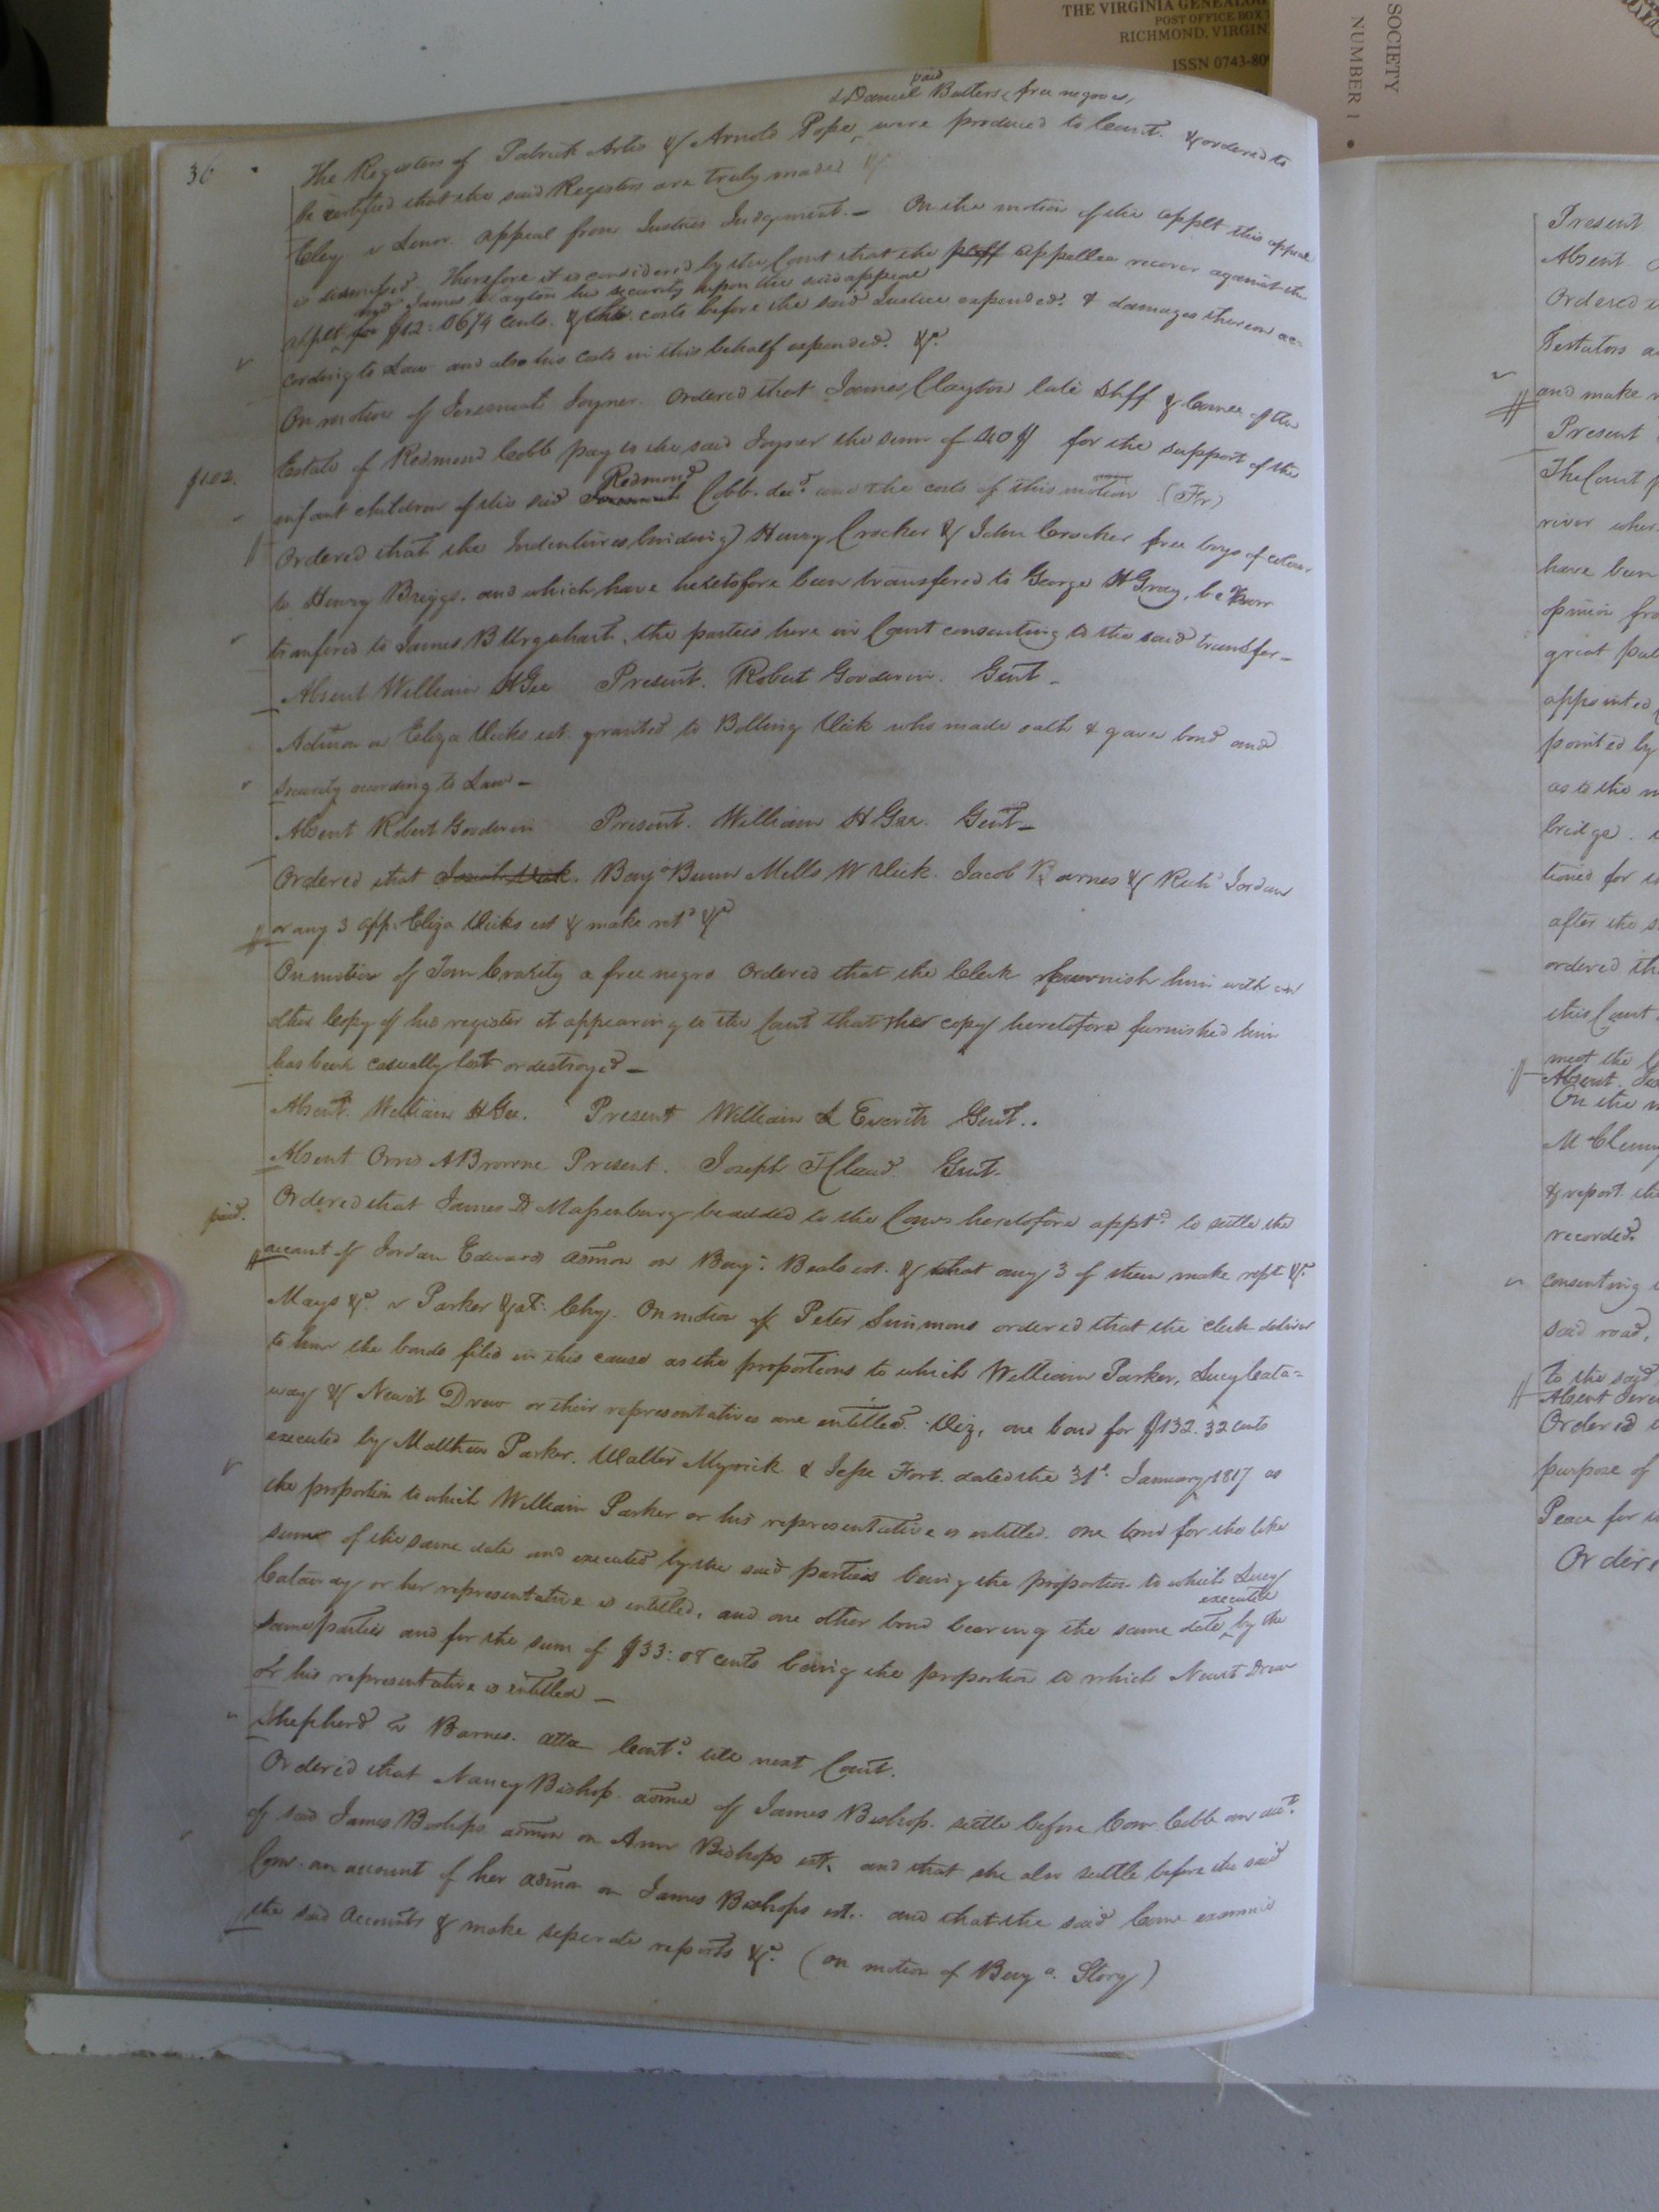 THE VIRGINIA GENEALOG
POST OFFICE BOX 7
RICHMOND, VIRGIN
ISSN 0743-809
SOCIETY
NUMBER 1 •
36
paid
& Daniel Butters free negroes,
The Registers of Patrick Artis & Arnold Pope were produced to Court. & ordered to
be certified that the said Registers are truly made &
Eley v appeal from Justices Judgment. — On the motion of the applt this appeal
is dismissed Therefore it is considered by the Court that the appellee recover against the
and James Clayton his security upon the said appeal
applt for $12:06¼ cents. & costs before the said Justice expended. & damages thereon ac-
cording to Law and also his costs in this behalf expended. &c.
On motion of Joyner. Ordered that James Clayton late Shff & Comee of the
$1.02.
Estate of Redmond Cobb pay to the said Joyner the sum of 40$ for the support of the
Redmond
infant children of the said Cobb. decd. and the costs of this motion (Fr)
Ordered that the Indentures binding Henry Crocker & John Crocker free boys of colour
to Henry Briggs. and which have heretofore been transfered to George H Gray, be
transfered to James B Urquhart, the parties here in Court consenting to the said transfer —
Absent William H Gee Present. Robert Goodwin. Gent —
Admon on Eliza Vicks est. granted to Bolling Vick who made oath & gave bond and
security according to Law —
Absent Robert Goodwin Present. William H Gee. Gent —
Ordered that Josiah Vick. Benja Bunn Mills W Vick. Jacob Barnes & Richd Jordan
or any 3 app. Eliza Vicks est & make ret &c
On motion of Tom a free negro Ordered that the Clerk furnish him with an
other Copy of his register it appearing to the Court that the copy heretofore furnished him
has been casually lost or destroyed —
Absent. William H Gee. Present William L Everitt Gent..
Absent Orris A Browne Present. Joseph T Claud. Gent.
paid.
Ordered that James D Massenburg be added to the Comrs heretofore apptd. to settle the
account of Jordan Edwards admon on Benj: Beals est. & that any 3 of them make rept &c.
Mays &c. v Parker & at: Chy. On motion of Peter Simmons ordered that the clerk deliver
to him the bonds filed in this cause as the proportions to which William Parker, Lucy Cata=
way & Newit Drew or their representatives are entitled. Viz, one bond for $132.32 cents
executed by Matthew Parker. Walter Myrick & Jesse Fort. dated the 31st. January 1817 as
the proportion to which William Parker or his representative is entitled. one bond for the like
sum of the same date and executed by the said parties being the proportion to which Lucy
executed
Cataway or her representative is entitled, and one other bond bearing the same date by the
same parties and for the sum of $33:08 cents being the proportion to which Newit Drew
or his representative is entitled —
Shepherd v Barnes. atta Contd. till next Court.
Ordered that Nancy Bishop. admx of James Bishop. settle before Comr. Cobb an acct.
of said James Bishops admon on Ann Bishops est. and that she also settle before the said
Comr. an account of her admon on James Bishops est.. and that the said Comr examine
the said Accounts & make seperate reports &c. (on motion of Benja. Story)
Present
Absent
Ordered
Testators
and make
Present
The Court
river
have been
opinion
great
appointed
pointed by
as to the
bridge.
tioned for
after the
ordered
this Court.
meet the
Absent.
On the
& report
recorded.
consenting
said road,
to the said
Absent
Ordered
purpose of
Peace for
Order